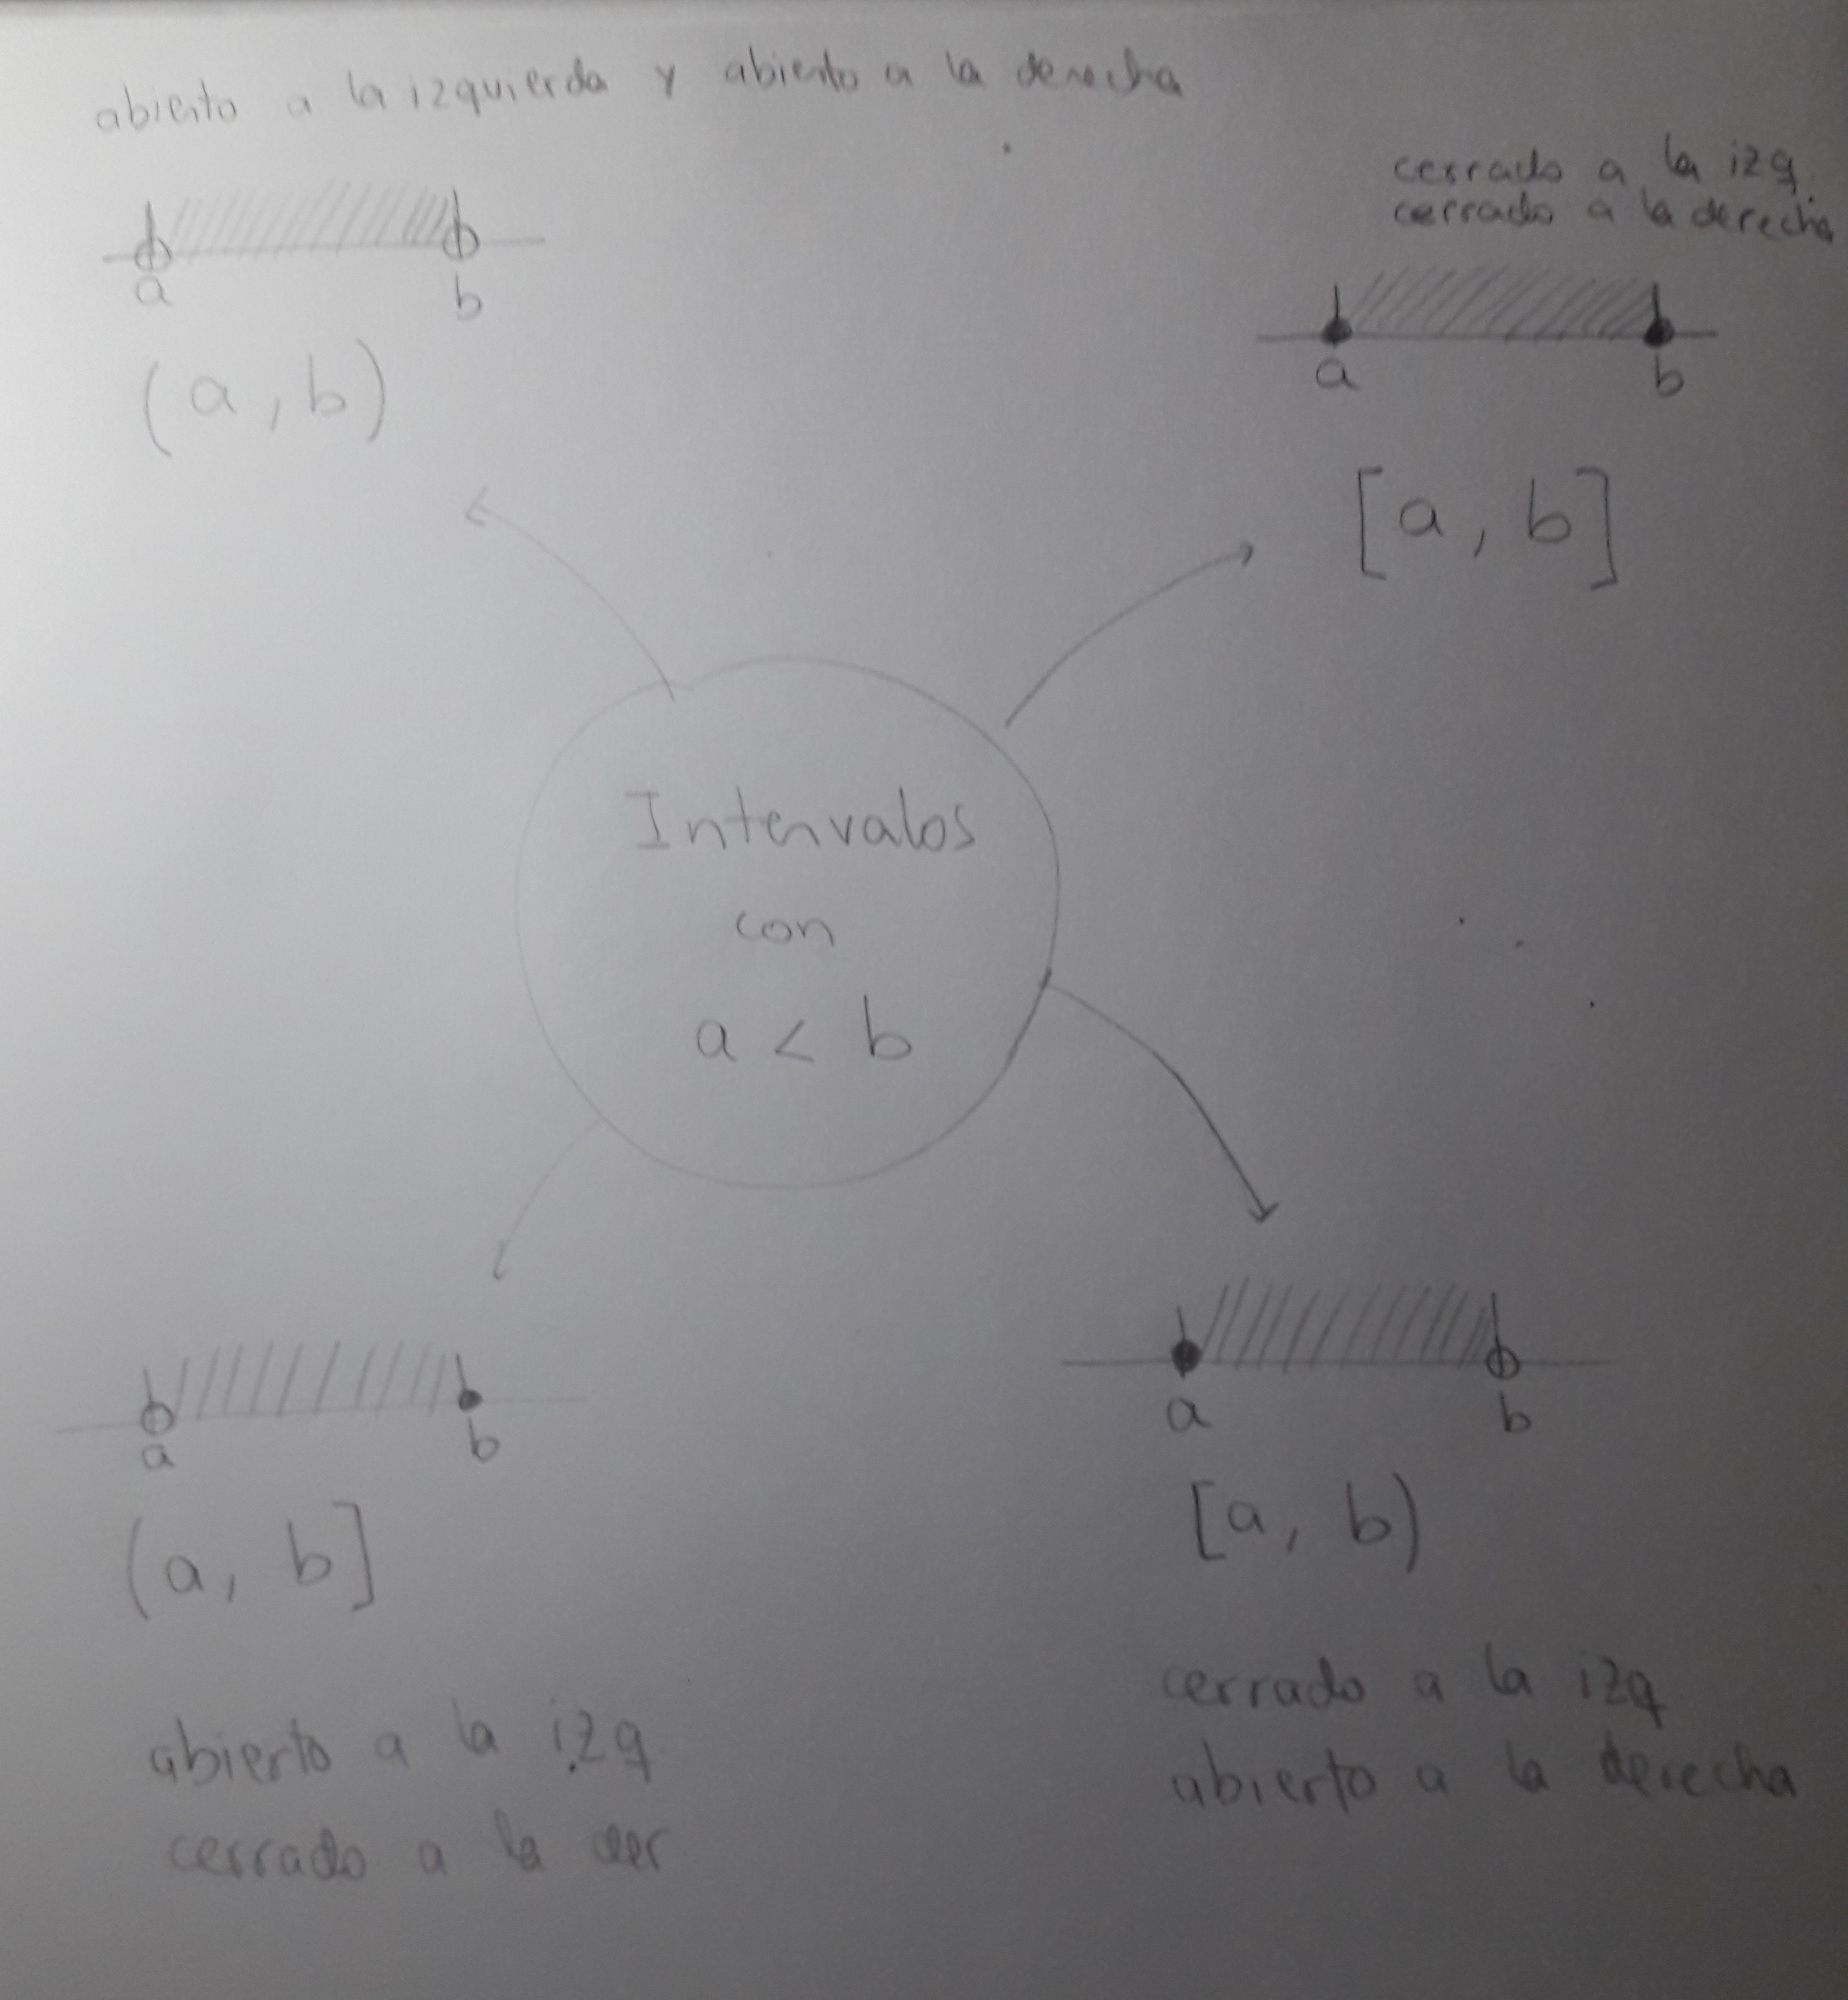 abierto a la izquierda y abierto a la derecha
a b
(a, b)
cerrado a la izq.
cerrado a la derecha
a b
[a, b]
Intervalos
con
a < b
a b
(a, b]
abierto a la izq
cerrado a la der
a b
[a, b)
cerrado a la izq
abierto a la derecha